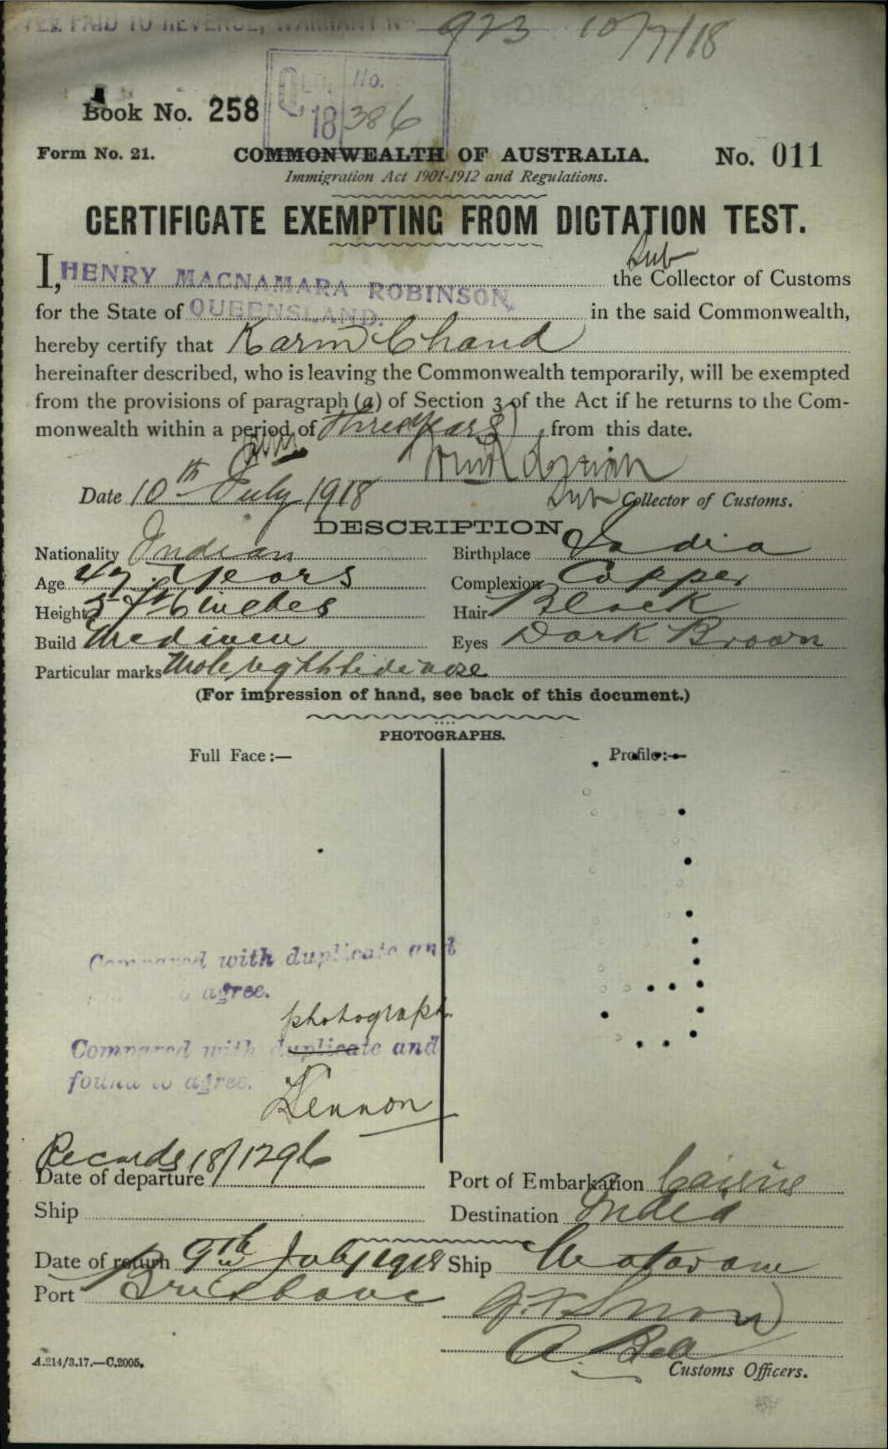 FEE PAID TO REVENUE, WARRANT No 923 10/7/18
QLD. No.
18 386
Book No. 258
Form No. 21.
COMMONWEALTH OF AUSTRALIA.
No. 011
Immigration Act 1901-1912 and Regulations.
CERTIFICATE EXEMPTING FROM DICTATION TEST.
Sub
I, HENRY MACNAMARA ROBINSON, the Collector of Customs
for the State of QUEENSLAND. in the said Commonwealth,
hereby certify that Karm Chand
hereinafter described, who is leaving the Commonwealth temporarily, will be exempted
from the provisions of paragraph (a) of Section 3 of the Act if he returns to the Com-
monwealth within a period of three years from this date.
Date 10th July 1918 Sub Collector of Customs.
DESCRIPTION
Nationality Indian Birthplace India
Age 47 years Complexion Copper
Height 5ft 6 inches Hair Black
Build Medium Eyes Dark Brown
Particular marks Mole right side nose
(For impression of hand, see back of this document.)
PHOTOGRAPHS.
Full Face:— Profile:—
Compared with duplicate and
agree.
photograph
Compared with duplicate and
found to agree.
Lennon
Records 18/1296
Date of departure Port of Embarkation Cairns
Ship Destination India
Date of return 9th July 1918 Ship Mataram
Port Brisbane
A.214/3.17.—C.2005.
Customs Officers.